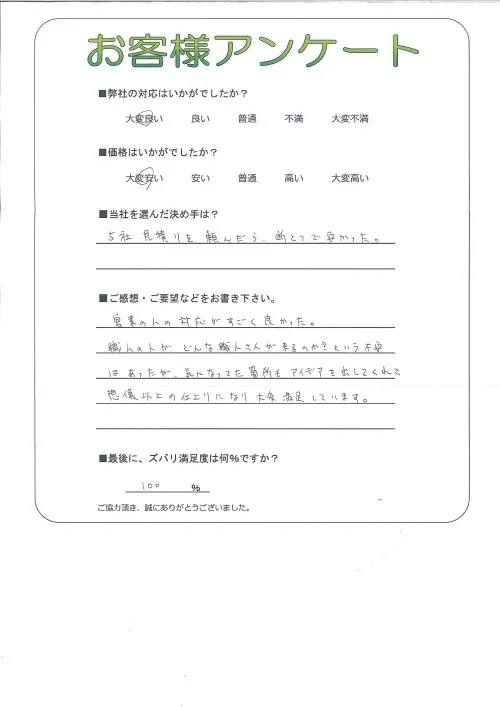 お客様アンケート
■弊社の対応はいかがでしたか？
大変良い 良い 普通 不満 大変不満
■価格はいかがでしたか？
大変安い 安い 普通 高い 大変高い
■当社を選んだ決め手は？
5社見積りを頼んだら、断とつで安かった。
■ご感想・ご要望などをお書き下さい。
営業の人の対応がすごく良かった。
職人の人がどんな職人さんが来るのか？という不安
はあったが、気になってた箇所もアイデアを出してくれて
想像以上の仕上りになり大変満足しています。
■最後に、ズバリ満足度は何%ですか？
100 %
ご協力頂き、誠にありがとうございました。